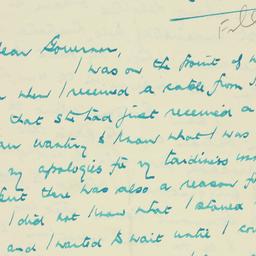 Dear Governor,
I was on the point of w
n when I received a cable from
that she had just received a
wanting to know what I was
my apologies for my tardiness in
but there was also a reason fo
I did not know what I stood
and I wanted to wait until I cou